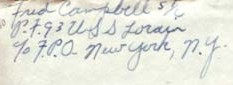 Fred Campbell S 1/c
P.F. 93 U S S Lorain
c/o F.P.O. New York, N.Y.